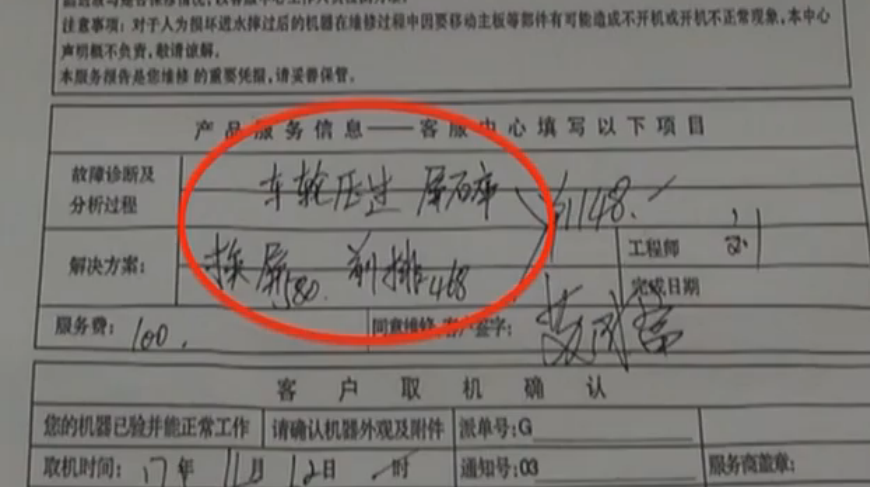 注意事项：对于人为损坏进水摔过后的机器在维修过程中因要移动主板等部件有可能造成不开机或开机不正常现象，本中心
声明概不负责，敬请谅解。
本服务报告是您维修的重要凭据，请妥善保管。
产品服务信息——客服中心填写以下项目
故障诊断及
分析过程
车轮压过 屏碎
1148.
解决方案：
换屏580. 前排468
工程师
刘
完成日期
服务费：100.
同意维修，客户签字：
客户取机确认
您的机器已验并能正常工作
请确认机器外观及附件
派单号：G
取机时间：17年11月12日 时
通知号：03
服务商盖章：